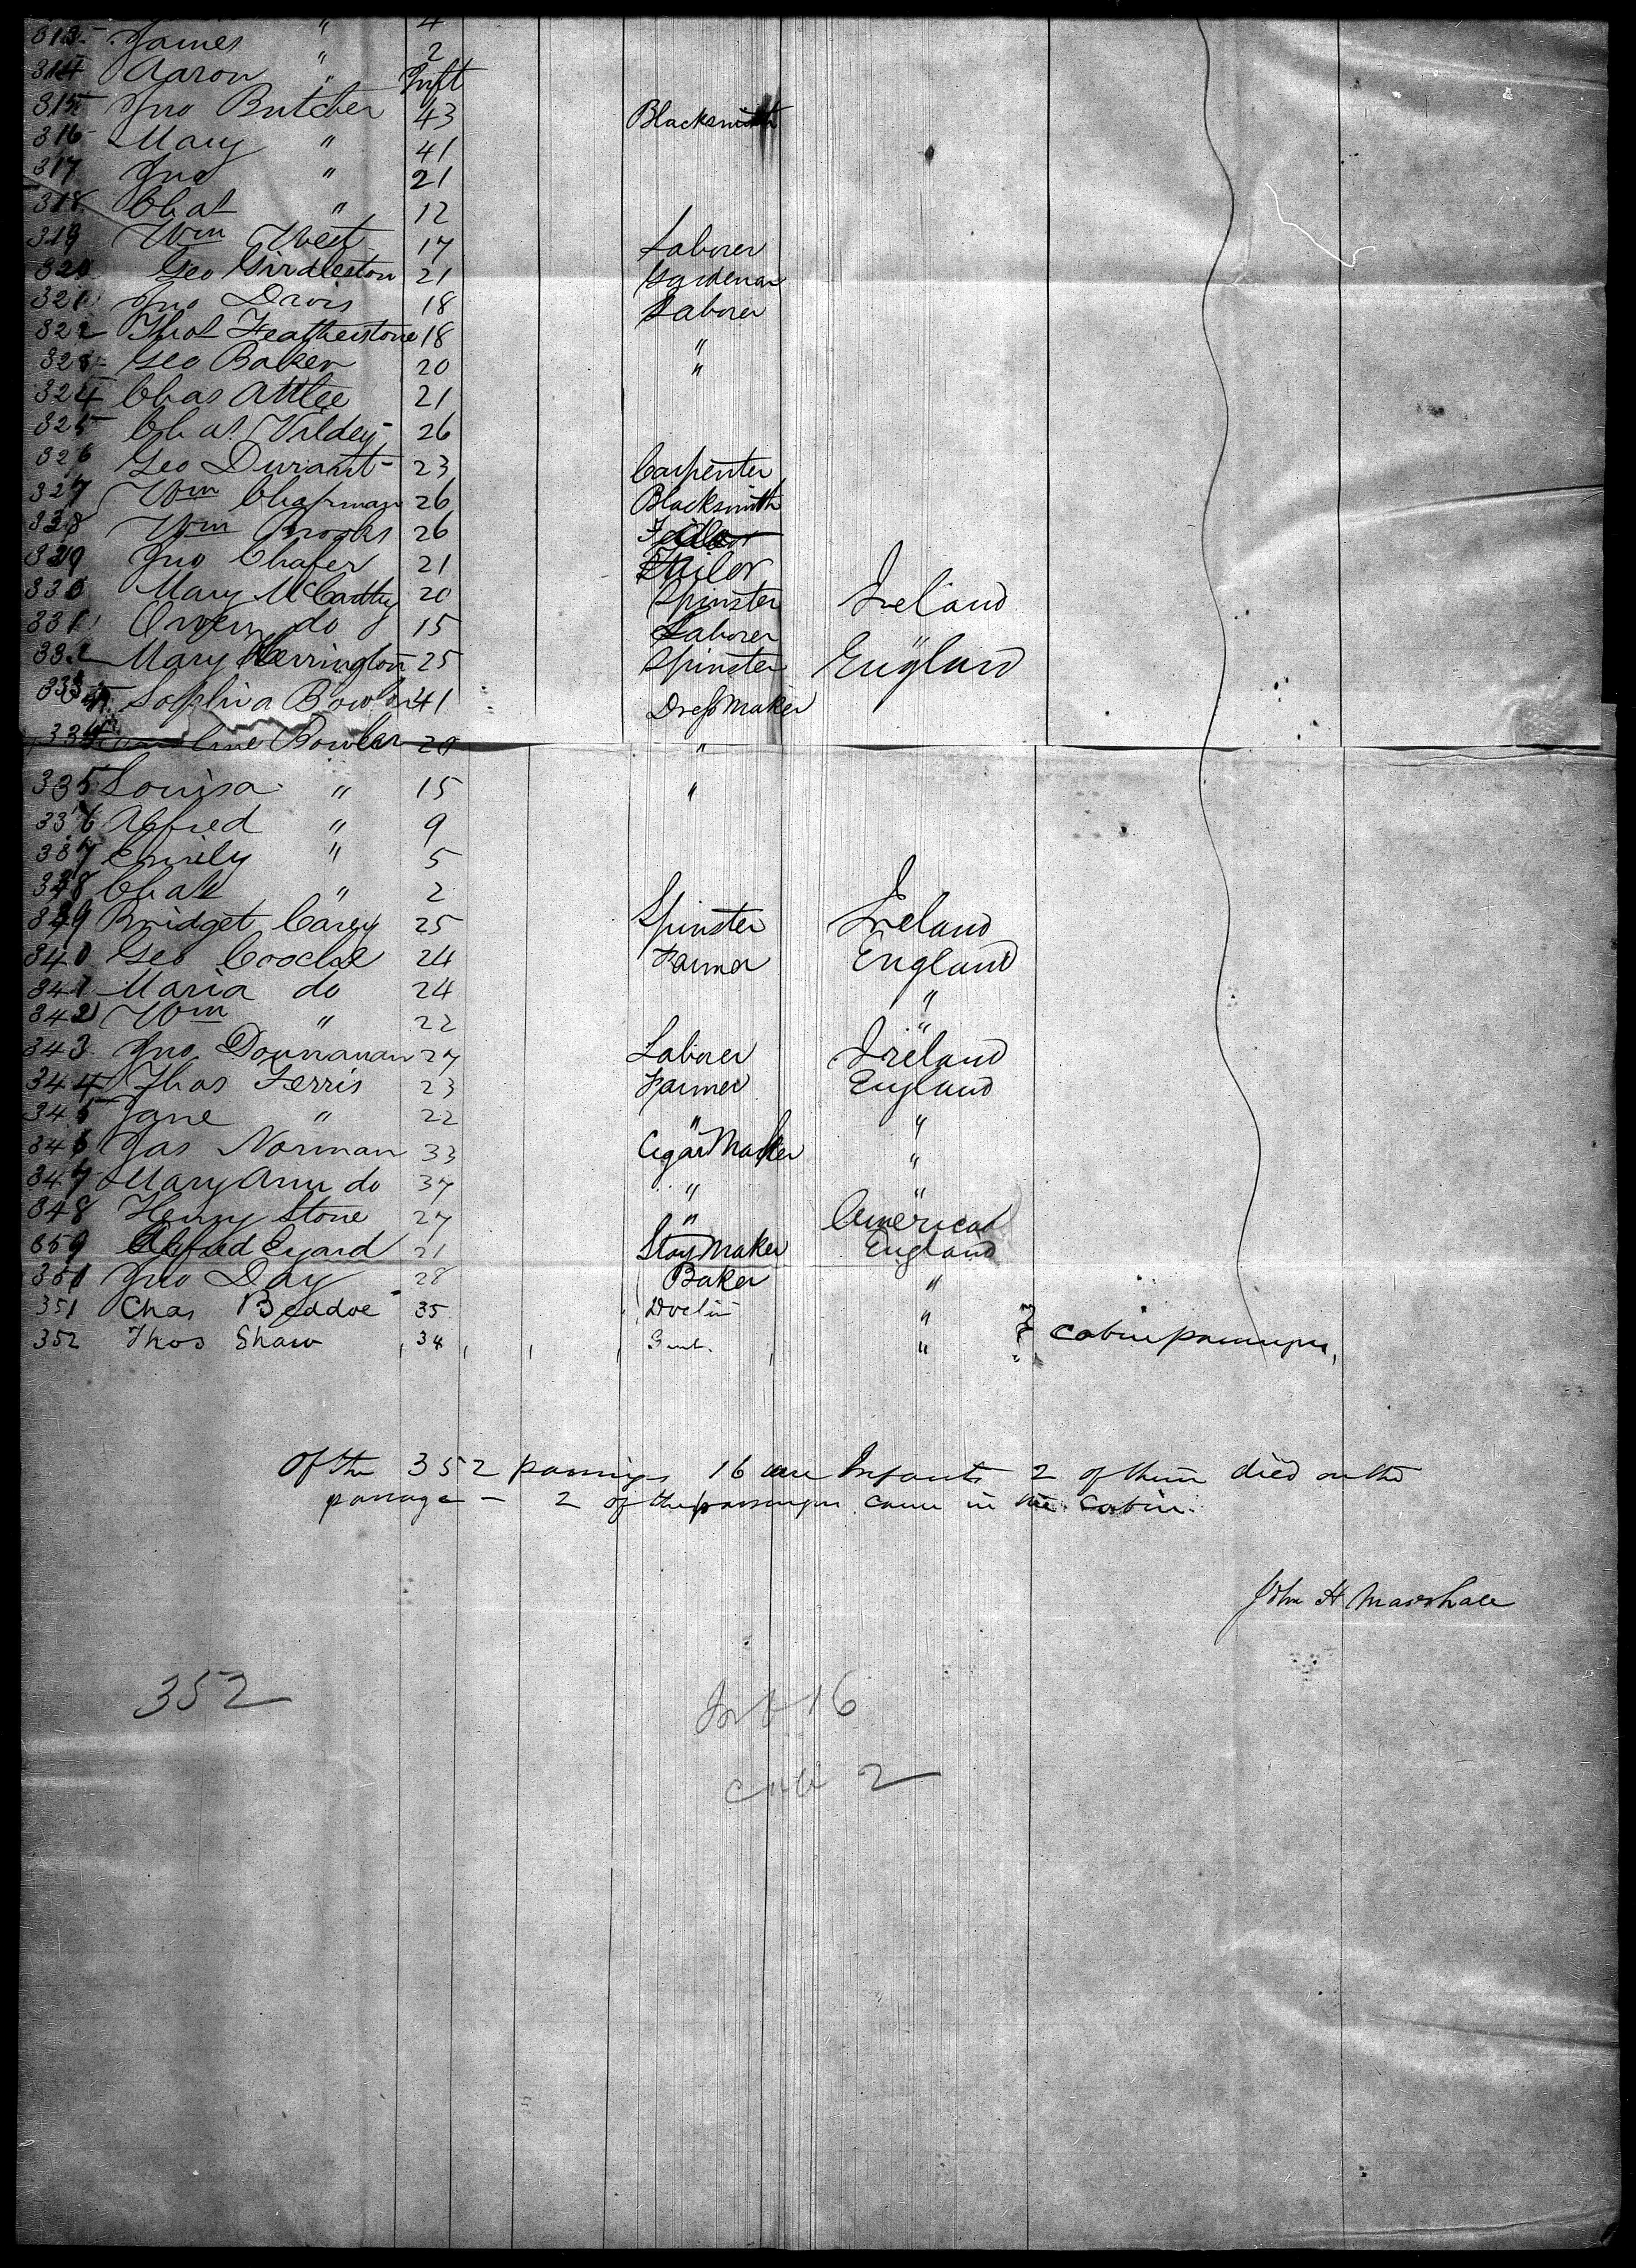 4
313 James " 2
314 Aaron " Inft
315 Jno Butcher 43 Blacksmith
316 Mary " 41
317 Jno " 21
318 Chas " 12
319 Wm West 17 Laborer
320 Geo Girdleston 21 Gardener
321 Jno Davis 18 Laborer
322 Thos Featherstone 18 "
323 Geo Baker 20 "
324 Chas Attlee 21
325 Chas Vildey 26
326 Geo Durant 23 Carpenter
327 Wm Chapman 26 Blacksmith
328 Wm Brooks 26
329 Jno Chafer 21 Tailor
330 Mary McCarthy 20 Spinster Ireland
331 Owen do 15 Laborer "
332 Mary Herrington 25 Spinster England
333 Sophia Bowler 41 Dress Maker
334 Caroline Bowler 20 "
335 Louisa " 15 "
336 Alfred " 9
337 Emily " 5
338 Chas " 2
339 Bridget Carey 25 Spinster Ireland
340 Geo 24 Farmer England
341 Maria do 24 "
342 Wm " 22 "
343 Jno Dounanan 27 Laborer Ireland
344 Thos Ferris 23 Farmer England
345 Jane " 22 " "
346 Jas Norman 33 Cigar Maker "
347 Mary Ann do 37 " "
348 Henry Stone 27 " America
359 Alfred Eyard 21 Stay Maker England
350 Jno Day 28 Baker "
351 Chas Beddoe 35 Doctor "
352 Thos Shaw 34 Gent. " } cabin passengers
Of the 352 passengers 16 are Infants 2 of them died on the
passage - 2 of the passengers came in the cabin.
John H Marshall
352 Inf 16
cab 2